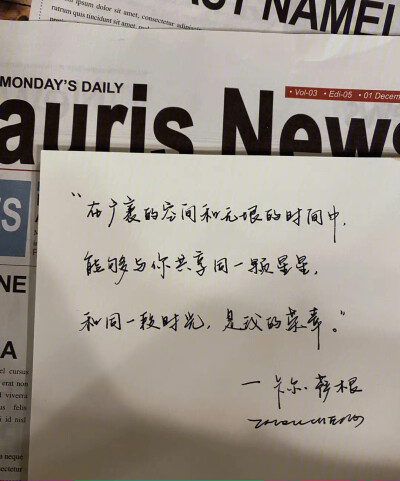 AST NAMEL
psum dolor sit amet, consectetur adipiscin
ratrum quis tincidunt sit amet,
MONDAY'S DAILY
• Vol-03 • Edi-05 • 01 Decem
auris News
S
NE
A
el cursus
erat non
viverra
felis
id nisl
neque
nsectetur
“在广袤的空间和无垠的时间中,
能够与你共享同一颗星星,
和同一段时光,是我的荣幸。”
一卡尔·萨根